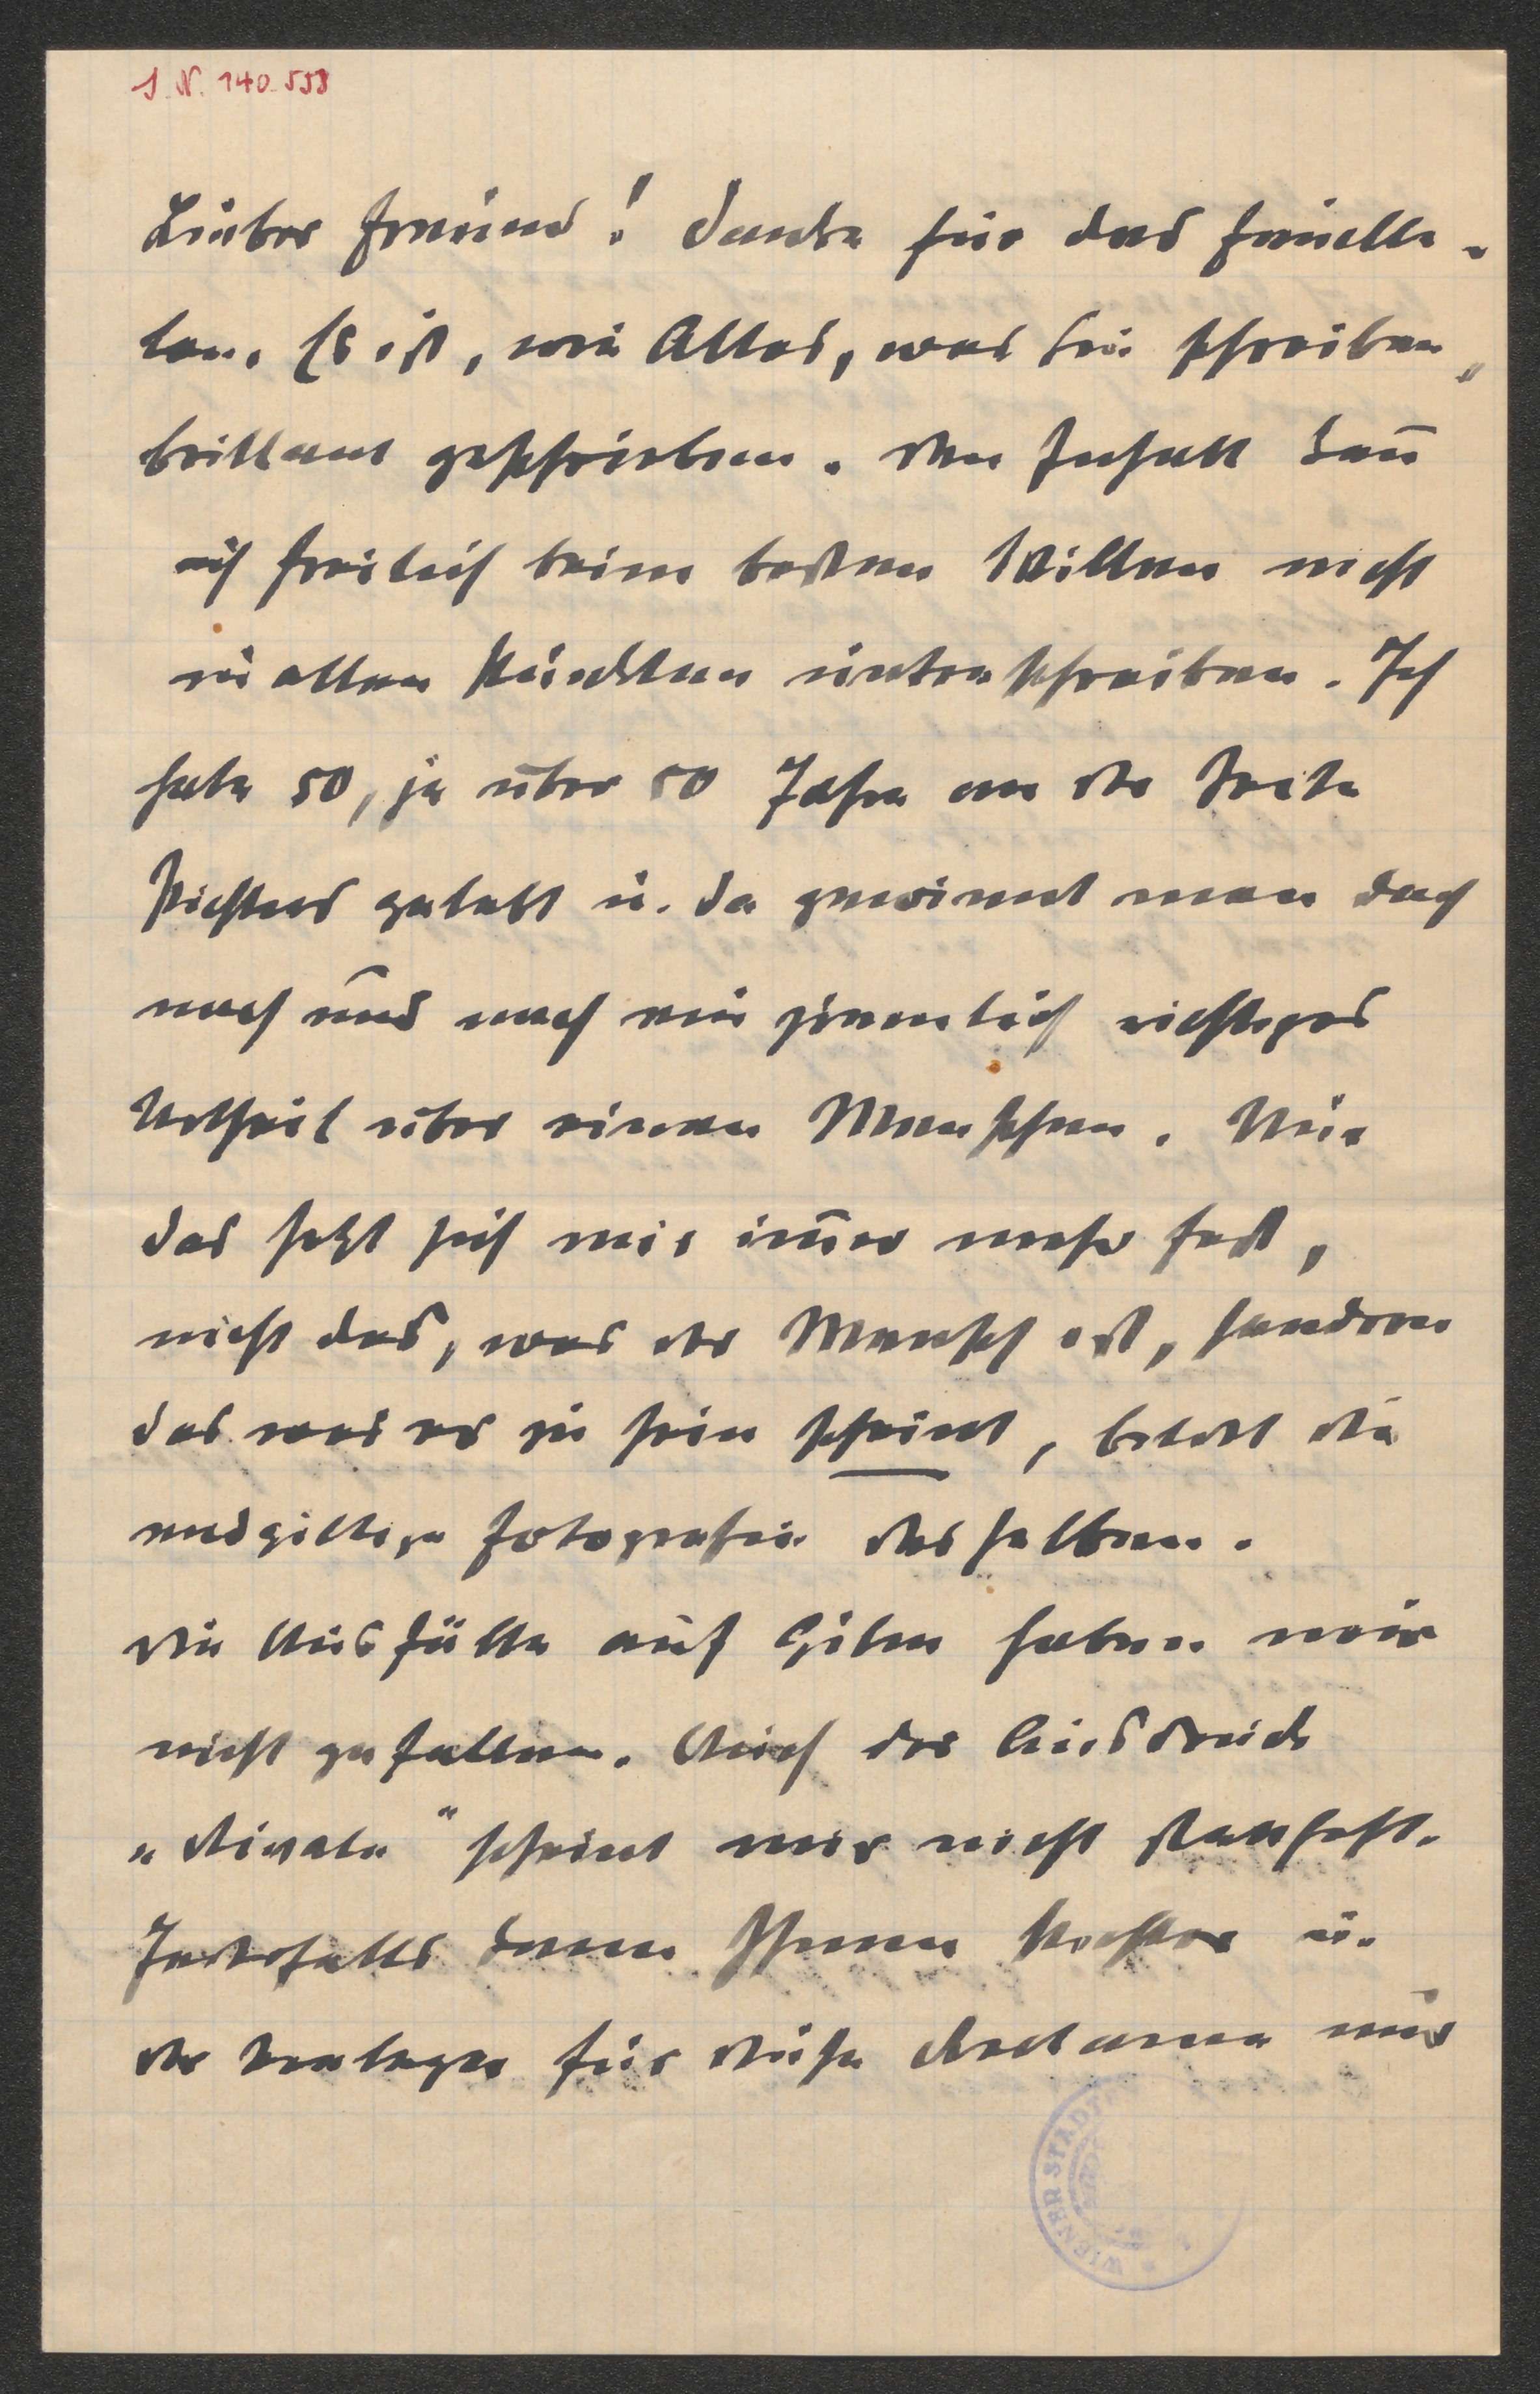 I. N. 140.553
Lieber Freund! Danke für das Feuille-
ton. Es ist, wie Alles, was Sie schreiben,
brillant geschrieben. Den Inhalt kann̄
ich freilich beim besten Willen nicht
in allen Stücken unterschreiben. Ich
habe 50, ja über 50 Jahre an der Seite
Richters gelebt u. da gewinnt man doch
nach und nach ein ziemlich richtiges
Urtheil über einen Menschen. Nur
das setzt sich mir im̄er mehr fest,
nicht das, was der Mensch ist, sondern
das was er zu sein scheint, bildet die
endgiltige Fotografie desselben.
Die Ausfälle auf Gilm haben mir
nicht gefallen. Auch der Ausdruck
"Rivale" scheint mir nicht statthaft.
Jedesfalls kann Ihnen Richter u.
der Verleger für diese Reclame nur
WIENER STADT